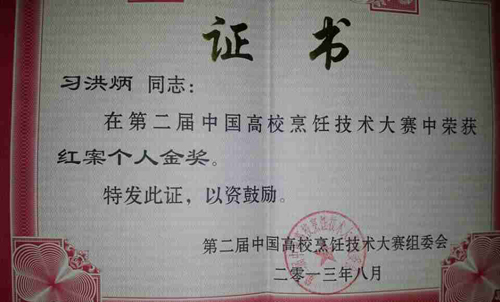 证书
习洪炳 同志：
在第二届中国高校烹饪技术大赛中荣获
红案个人金奖。
特发此证，以资鼓励。
第二届中国高校烹饪技术大赛组委会
二零一三年八月